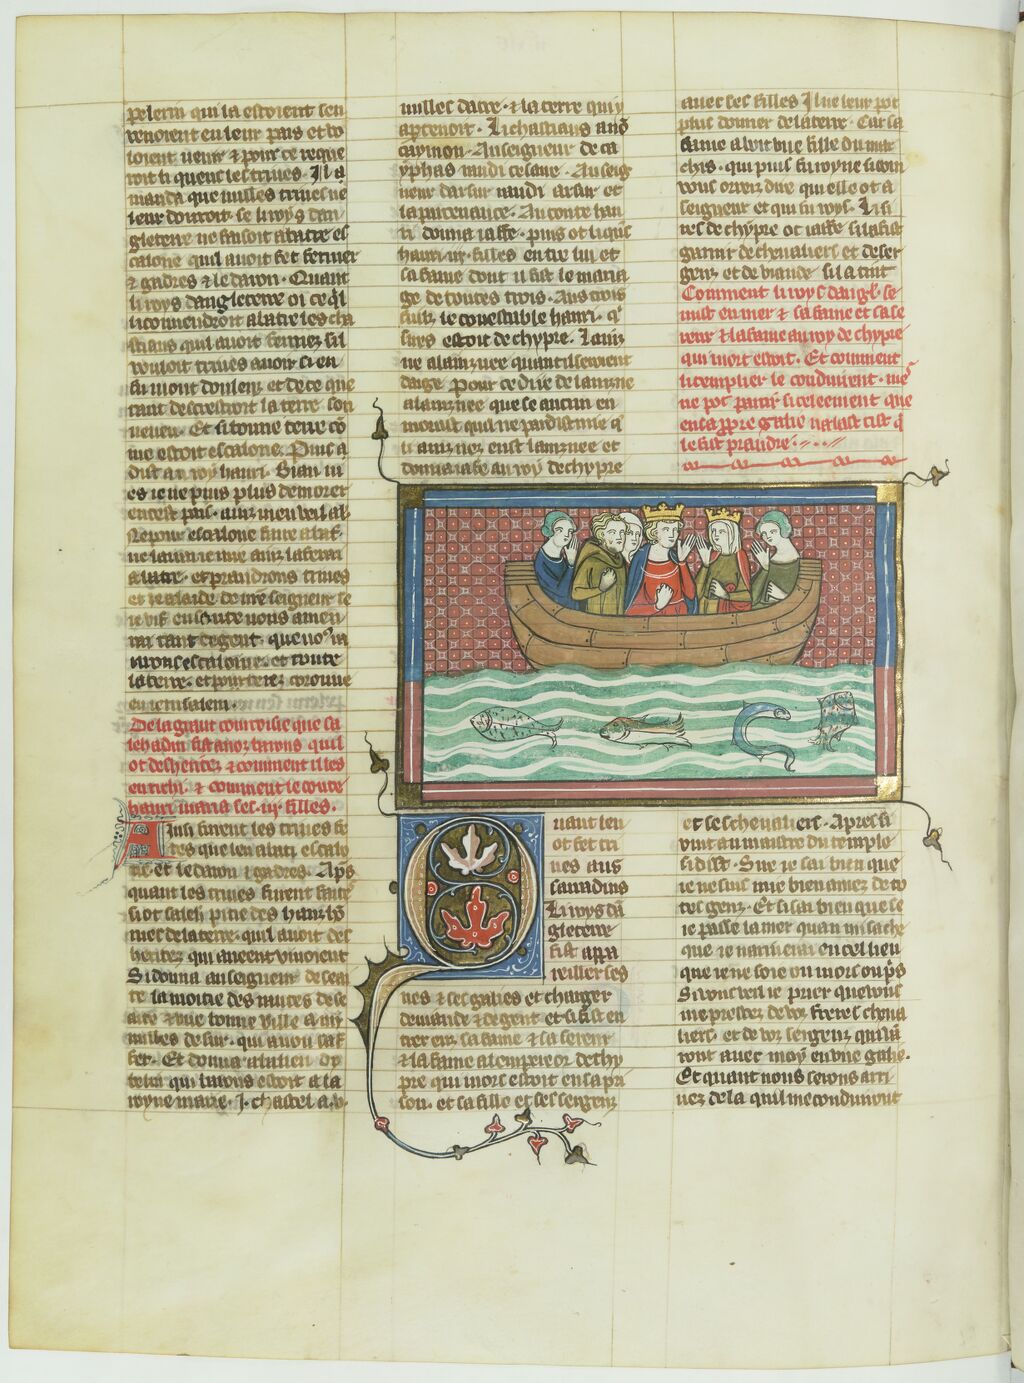 pelerin qui la estoient sen
venoient en leur pais et vo
loient venir & pour ce reque
roit li quens les triues. Il li
manda que nulles triues ne
leur donroit. se li roys den
gleterre ne faisoit abatre es
calone quil auoit fet fermer
& gadres & le daron. Quant
li roys dangleterre oi ce qil
li conuendroit abatre les cha
stiaus quil auoit fermez sil
vouloit triues auoir si en
fu mont doulenz et de ce que
tant descroissoit la terre son
neueu. Et si bonne terre co
me estoit escalone. Puis a
dist au roy hanri. Biau ni
es ie ne puis plus demorer
en cest pais.
ne laurai ie mie ainz la ferai
abatre. et prandrons triues
et ie aiderai de nre seigneur se
ie vif en
rai tant de gent. que uos ra
urois escalone. et toute
la terre. et porterez coronne
en ierusalem.
De la grant courtoisie que sa
lehadin fist aus barons quil
ot desheritez & comment il les
enrichi. & comment le conte
hanri maria ses .iij. filles.
Ainsi furent les triues fe
tes que len abati escalo
ne et le daron & gadres. Aps
quant les triues furent faites
si ot salehadin pitie des hauz ho
mes de la terre. quil auoit des
heritez qui ancent viuoient
Si donna au seigneur de seai
te la moitie des rentes de se
aite & vne bonne ville a .iiij.
milles de sur. qui auoit saf
fet. Et donna a balien dy
belin qui barons estoit a la
royne marie .j. chastel a .v.
milles dacre. & la terre qui y
apartenoit. Li chastiaus a non
caymon. Au seigneur de ca
yphas randi cesaire. Au seig
neur darsur randi arsur et
la partenance. Au conte han
ri donna iaffe. puis ot li quens
hanri .iij. filles entre lui et
sa fame dont il fist le maria
ge de toutes trois. Aus trois
fiulz le conestable hanri. qi
sires estoit de chypre. Lainz
ne a lainznee quant il seroient
daage. Pour ce di ie de lainzne
a lainznee que se aucun en
mouroit quil ne pardist mie qi
li ainznez eust lainznee et
donna iafe au roy de chypre
auec ses filles. Il ne leur pot
plus donner de la terre. Car sa
fame auoit vne fille du mar
chis. qui puis fu royne si com
vous orrez dire qui elle ot a
seigneur et qui fu roys. Li si
res de chypre ot iaffe si la fist
garnir de cheualiers et de ser
genz et de viande si la tint
Comment li roys dangl. se
mist en mer & sa fame et sa se
reur & la fame au roy de chypre
qui mort estoit. Et comment
li templier le conduirent. mes
ne pot partir si celeement que
en sa ppre galie nalast cist qi
le fist prandre.
Quant len
ot fet tri
ues aus
sarradins
Li roys dan
gleterre
fist appa
reiller ses
nes & ses galies et charger
de viande & de gent et si fist en
trer enz sa fame & sa sereur
& la fame a lempereor de chy
pre qui mors estoit en sa pri
son. et sa fille et ses sergenz
et ses cheualiers. Apres si
vint au maistre du temple
si dist. Sire ie sai bien que
ie ne suis mie bien amez de to
tes genz. Et si sai bien que se
ie passe la mer quan mi sache
que ie narriuerai en cel lieu
que ie ne soie ou mors ou pris
Si vous veil ie prier que vous
me prestez de voz freres cheua
liers. et de voz sergenz qui uan
ront auec moy en vne galie.
Et quant nous serons arri
uez de la quil me conduiront